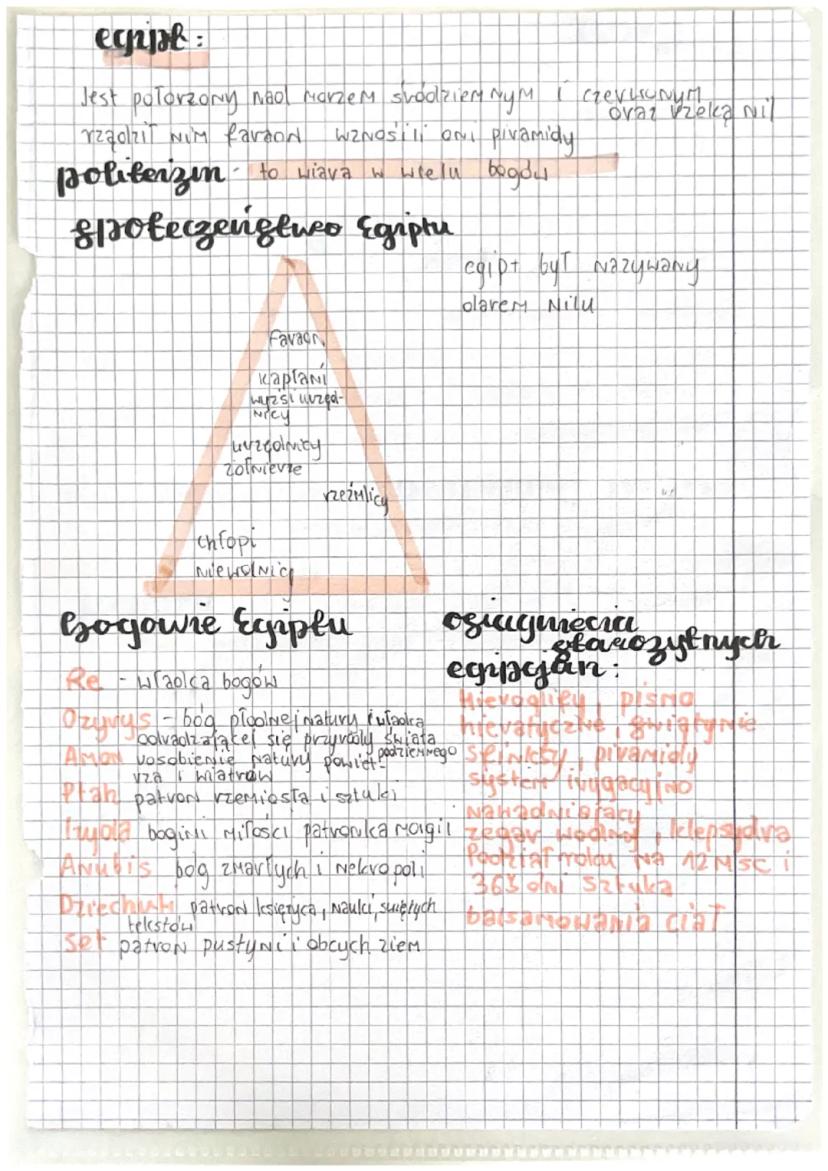 egipt:
Jest położony nad morzem śródziemnym i czerwonym
oraz rzeką nil
rządził nim faraon wznosili oni piramidy
politeizm - to wiara w wielu bogów
społeczeństwo Egiptu
egipt był nazywany
darem Nilu
faraon
kapłani
wyżsi urzęd-
nicy
urzędnicy
żołnierze
rzeźnicy
chłopi
niewolnicy
Bogowie Egiptu
Re - władca bogów
Ozyrys - bóg płodnej natury i władca
odradzającej się przyrody świata
podziemnego
Amon uosobienie natury powiet-
rza i wiatrów
Ptah patron rzemiosła i sztuki
bogini miłości patronka mogił
Anubis bóg zmarłych i nekropoli
patron księżyca, nauki, świętych
tekstów
Set patron pustyni i obcych ziem
osiągnięcia
starożytnych
egipcjan:
Hieroglify, pismo
hieratyczne, świątynie
sfinksy, piramidy
system irygacyjno
nawadniający
zegar wodny, klepsydra
Podział roku na 12 msc i
365 dni sztuka
balsamowania ciał